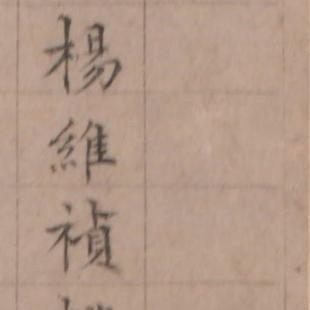 楊維禎